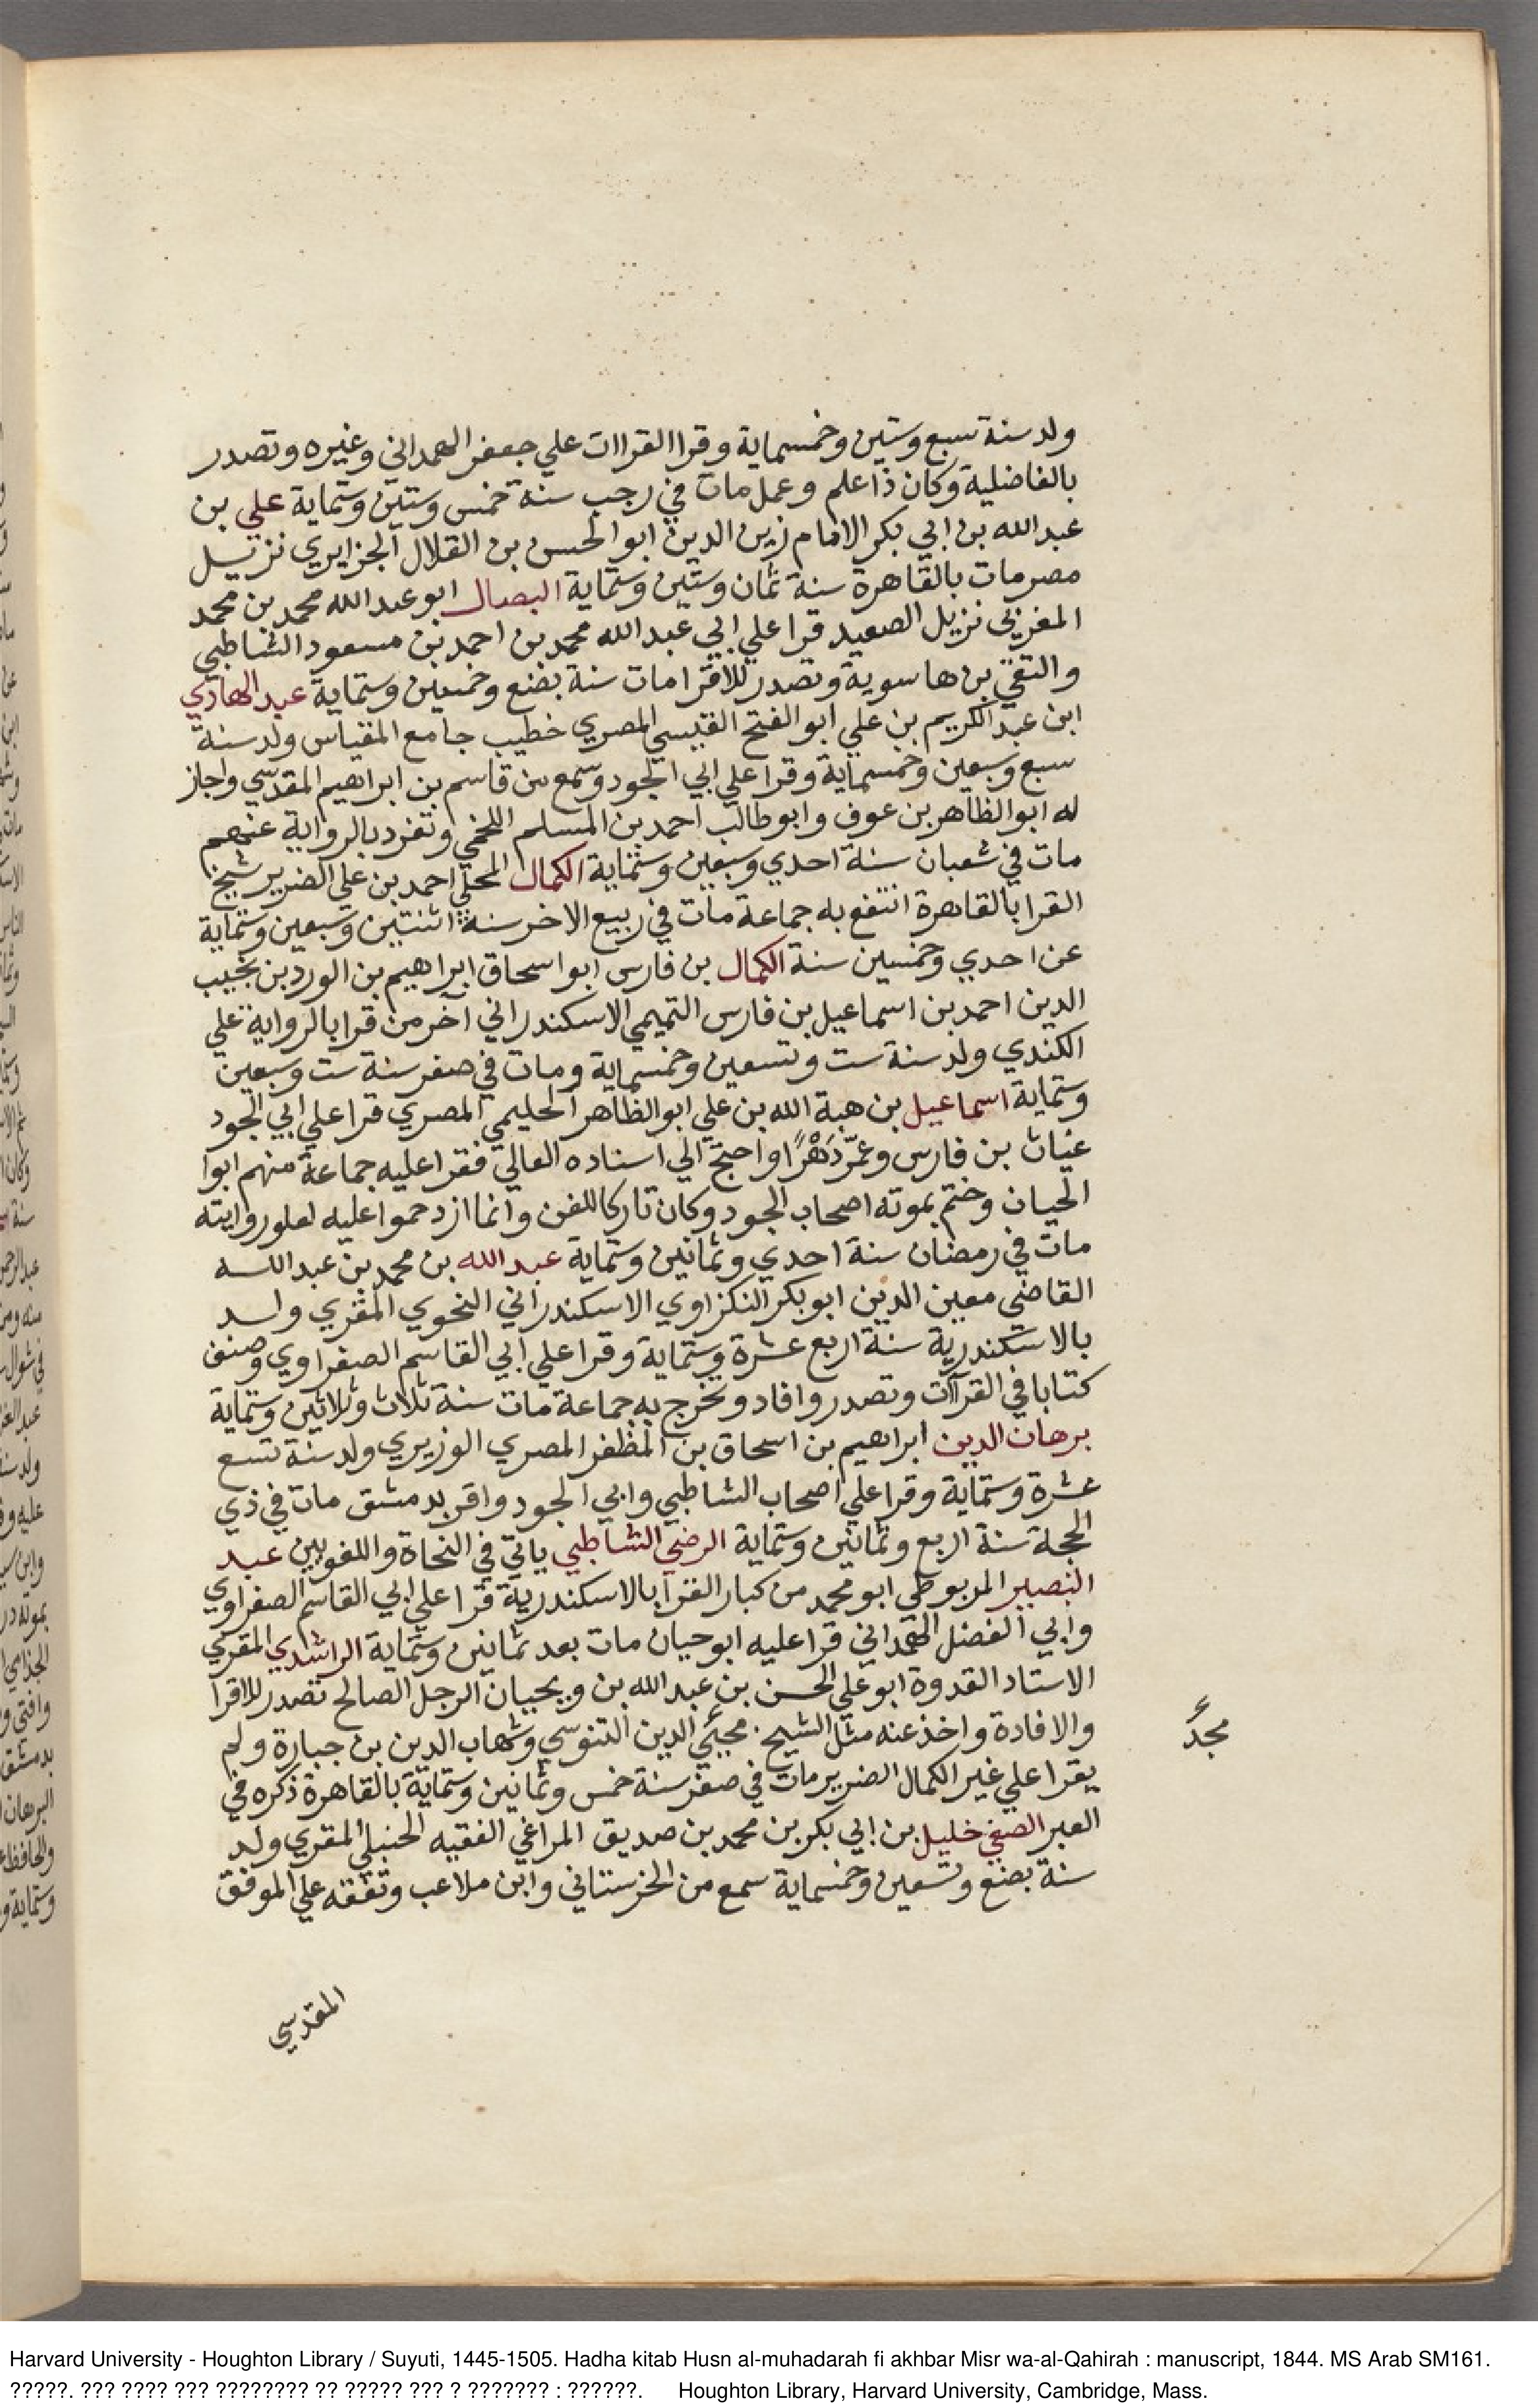 ولد سنة سبع وستين وخمسماية وقرا القراات علي جعفر الهمداني وغيره وتصدر
بالفاضلية وكان ذا علم وعمل مات في رجب سنة خمس وستين وستماية علي بن
عبد الله بن ابي بكر الامام زين الدين ابو الحسن بن القلال الجزايري نزيل
مصر مات بالقاهرة سنة ثمان وستين وستماية البصال ابو عبد الله محمد بن محمد
المغربي نزيل الصعيد قرا علي ابي عبد الله محمد بن احمد بن مسعود الشاطبي
والتقي بن هاسوية وتصدر للاقرا مات سنة بضع وخمسين وستماية عبد الهادي
ابن عبد الكريم بن علي ابو الفتح القيسي المصري خطيب جامع المقياس ولد سنة
سبع وسبعين وخمسماية وقرا علي ابي الجود وسمع من قاسم بن ابراهيم المقدسي واجاز
له ابو الظاهر بن عوف وابو طالب احمد بن المسلم اللخمي وتفرد بالرواية عنهم
مات في شعبان سنة احدي وسبعين وستماية الكمال المحلي احمد بن علي الضرير شيخ
القرا بالقاهرة انتفع به جماعة مات في ربيع الاخر سنة اثنتين وسبعين وستماية
عن احدي وخمسين سنة الكمال بن فارس ابو اسحاق ابراهيم بن الورد بن نجيب
الدين احمد بن اسماعيل بن فارس التميمي الاسكندراني آخر من قرا بالرواية علي
الكندي ولد سنة ست وتسعين وخمسماية ومات في صفر سنة ست وسبعين
وستماية اسماعيل بن هبة الله بن علي ابو الظاهر الحليمي المصري قرا علي ابي الجود
غياث بن فارس وعمّر دَهْرًا واحتج الي اسناده العالي فقرا عليه جماعة منهم ابوا
الحيان وختم بموته اصحاب الجود وكان تاركا للفن وانما ازدحموا عليه لعلو روايته
مات في رمضان سنة احدي وثمانين وستماية عبد الله بن محمد بن عبد الله
القاضي معين الدين ابو بكر النكزاوي الاسكندراني النحوي المقري ولد
بالاسكندرية سنة اربع عشرة وستماية وقرا علي ابي القاسم الصفراوي وصنف
كتابا في القرآات وتصدر وافاد وتخرج به جماعة مات سنة ثلاث وثلاثين وستماية
برهان الدين ابراهيم بن اسحاق بن المظفر المصري الوزيري ولد سنة تسع
عشرة وستماية وقرا علي اصحاب الشاطبي وابي الجود واقر بدمشق مات في ذي
الحجة سنة اربع وثمانين وستماية الرضي الشاطبي ياتي في النحاة واللغويين عبد
النصير المربوطي ابو محمد من كبار القرا بالاسكندرية قرا علي ابي القاسم الصفراوي
وابي الفضل الهمداني قرا عليه ابو حيان مات بعد ثمانين وستماية الراشدي المقري
الاستاد القدوة ابو علي الحسن بن عبد الله بن ويحيان الرجل الصالح تصدر للاقرا
والافادة واخذ عنه مثل الشيخ محيي الدين التنوسي وشهاب الدين بن جبارة ولم
مجد
يقرا علي غير الكمال الضرير مات في صفر سنة خمس وثمانين وستماية بالقاهرة ذكره في
العبر الصفي خليل بن ابي بكر بن محمد بن صديق المراغي الفقيه الحنبلي المقري ولد
سنة بضع وتسعين وخمسماية سمع من الخرستاني وابن ملاعب وتفقه علي الموفق
المقدسي
Harvard University - Houghton Library / Suyuti, 1445-1505. Hadha kitab Husn al-muhadarah fi akhbar Misr wa-al-Qahirah : manuscript, 1844. MS Arab SM161.
?????. ??? ???? ??? ???????? ?? ????? ??? ? ??????? : ??????. Houghton Library, Harvard University, Cambridge, Mass.